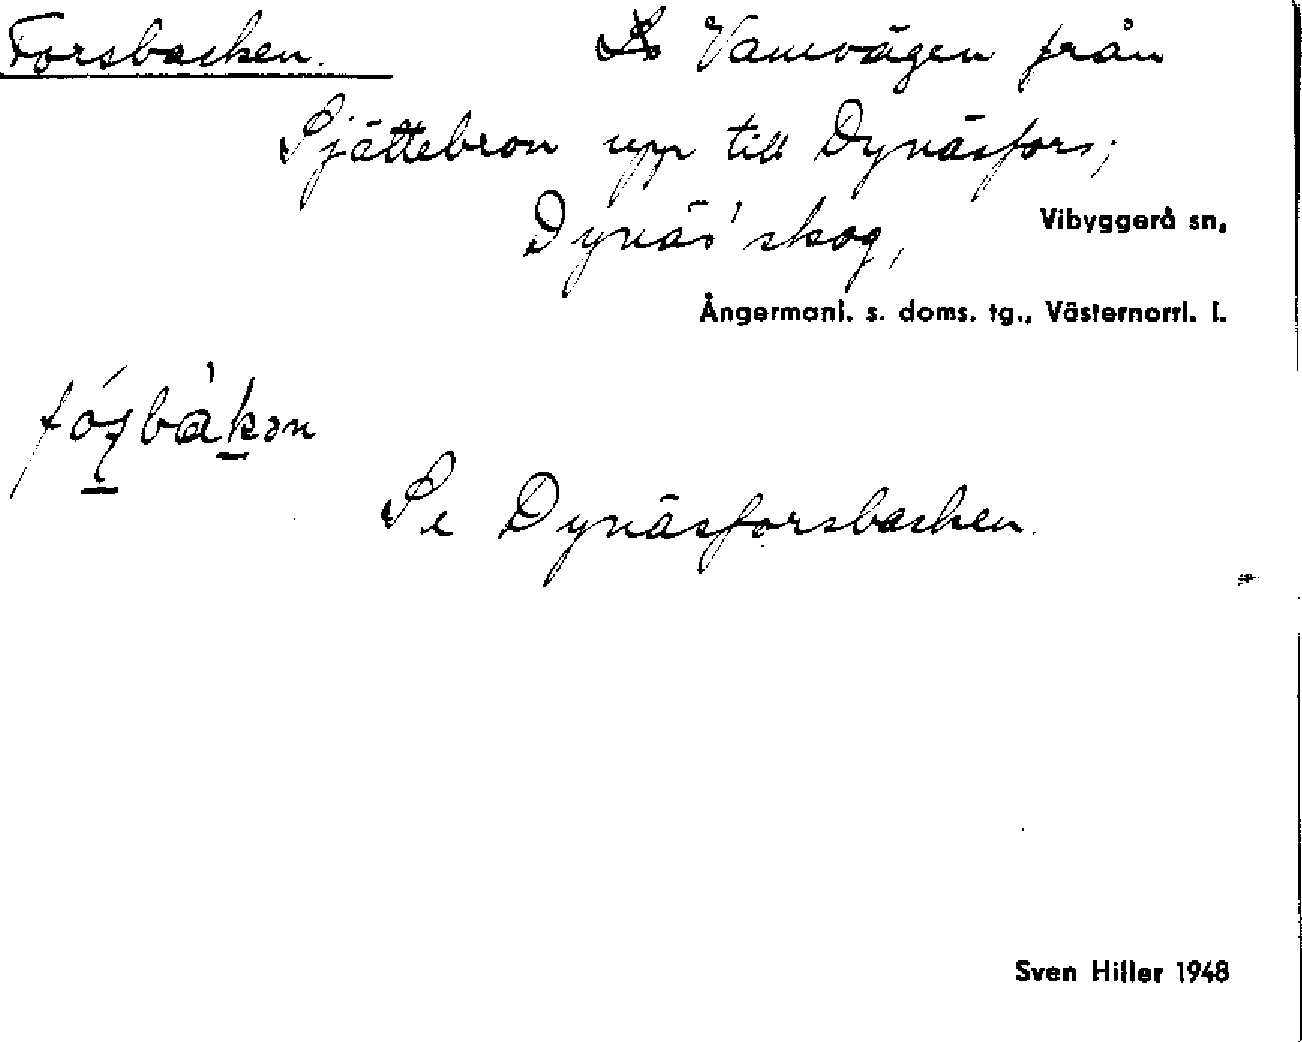 Forsbacken. Vamvägen från
Sjättebron upp till Dynäsfors;
Dynäs' skog,
Vibyggerå sn,
Ångermanl. s. doms. tg., Västernorrl. l.
Se Dynäsforsbacken.
Sven Hiller 1948